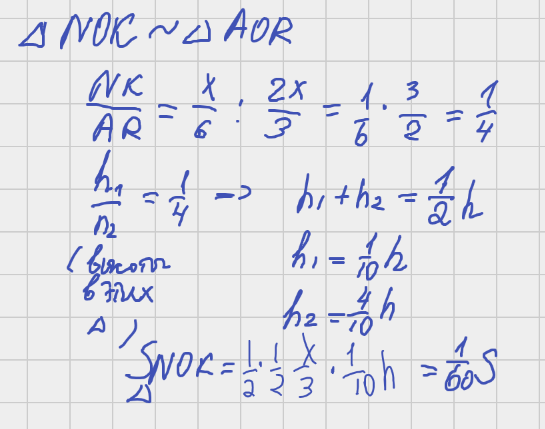 △ NOK ~ △ AOR
NK/AR = x/6 : 2x/3 = 1/6 · 3/2 = 1/4
h₁/h₂ = 1/4 → h₁ + h₂ = 1/2 h
(высоты h₁ = 1/10 h
в этих h₂ = 4/10 h
△)
S△NOK = 1/2 · 1/2 x/3 · 1/10 h = 1/60 S